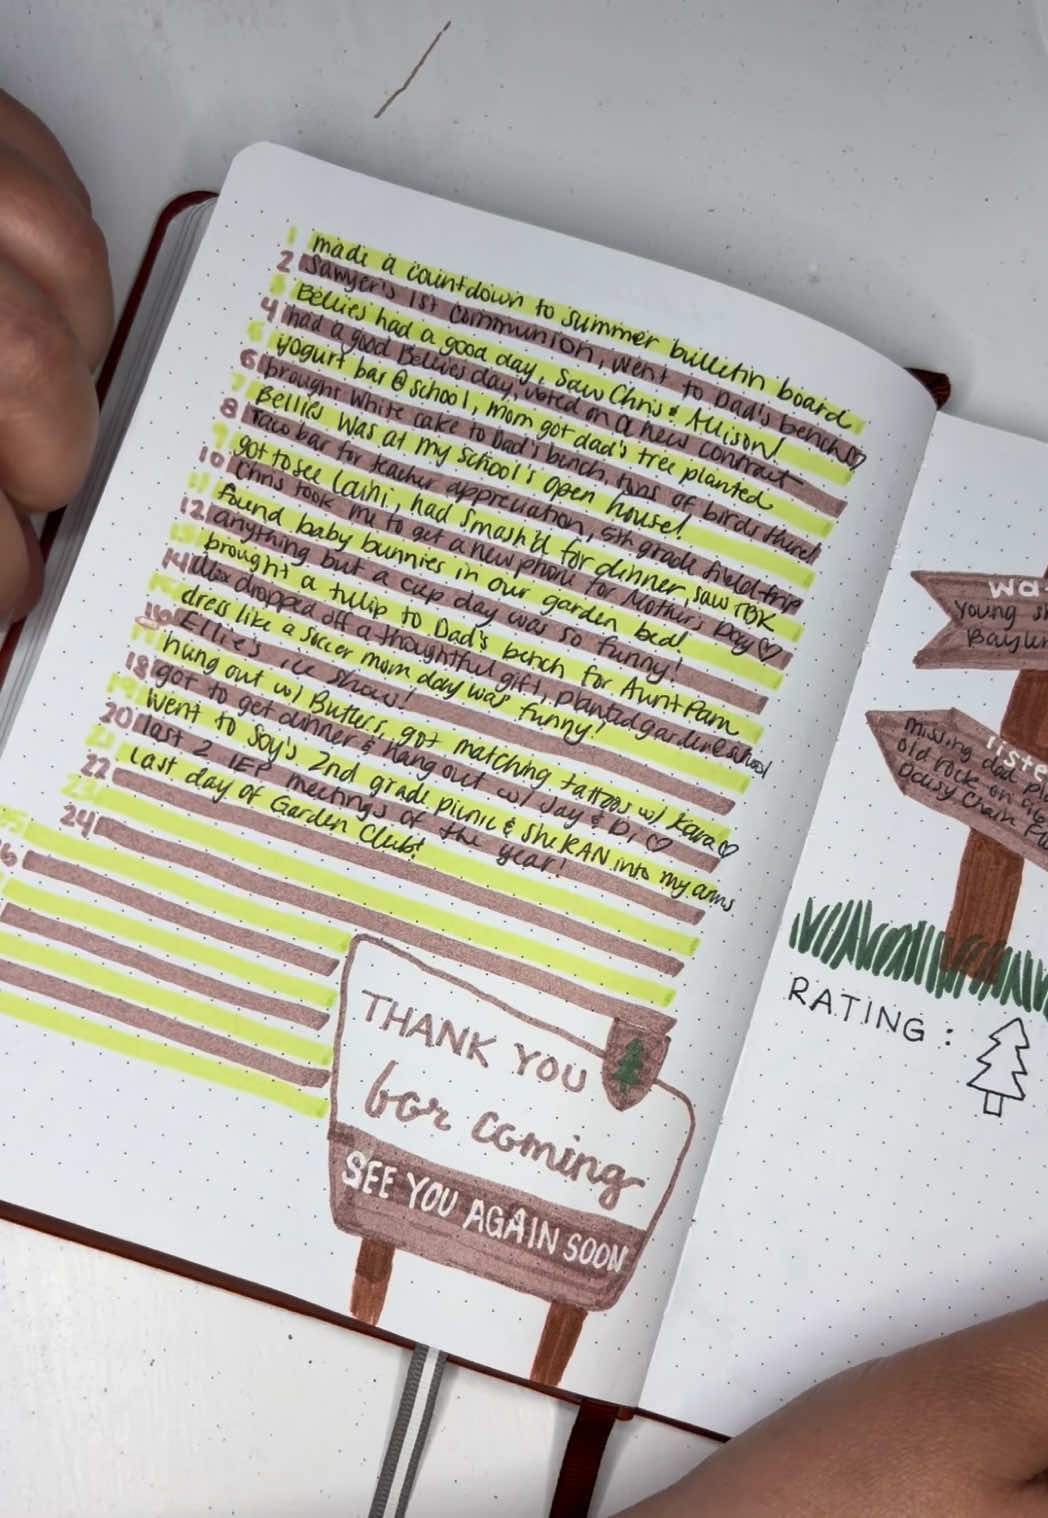 1 made a countdown to summer bulletin board
2 Sawyer's 1st communion, went to Dad's bench♡
3 Bellies had a good day, saw Chris & Allison
4 had a good Bellies day, voted on a new contract
5 yogurt bar @ school, mom got dad's tree planted
6 brought white cake to Dad's bench, tons of birds there!
7 Bellies was at my school's open house!
8 Taco bar for teacher appreciation, 5th grade field trip
9 got to see Laini, had Smash'd for dinner, saw TBK
10 Chris took me to get a new phone for Mother's Day ♡
11 found baby bunnies in our garden bed!
12 anything but a cup day was so funny!
13 brought a tulip to Dad's bench for Aunt Pam
14 dropped off a thoughtful gift, planted garden @ school
15 dress like a soccer mom day was funny!
16 Ellie's ice show!
17 hung out w/ Butlers, got matching tattoos w/ Kara♡
18 got to get dinner & hang out w/ Jay & Di ♡
19 went to Soy's 2nd grade picnic & she RAN into my arms
20 last 2 IEP meetings of the year!
21 last day of Garden Club!
22
23
24
25
26
THANK YOU
for coming
SEE YOU AGAIN SOON
wa
young sh
Baylu
liste
missing dad, pla
old rock on
Daisy Chain
RATING :